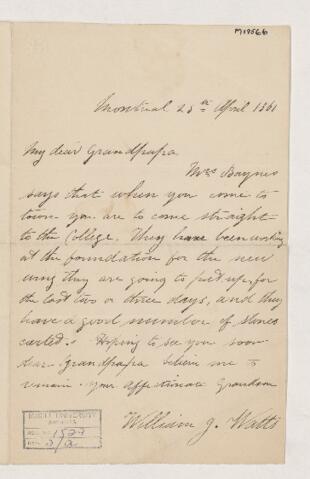 M19566
Montreal 25th April 1861
My dear Grandpapa
Mrs Baynes
says that when you come to
town you are to come straight
to the College. They have been working
at the foundation for the new
wing they are going to put up, for
the last two or three days, and they
have a good number of stones
carted. Hoping to see you soon
dear Grandpapa believe me to
remain your affectionate Grandson
William J. Watts
McGILL UNIVERSITY
ARCHIVES
1527